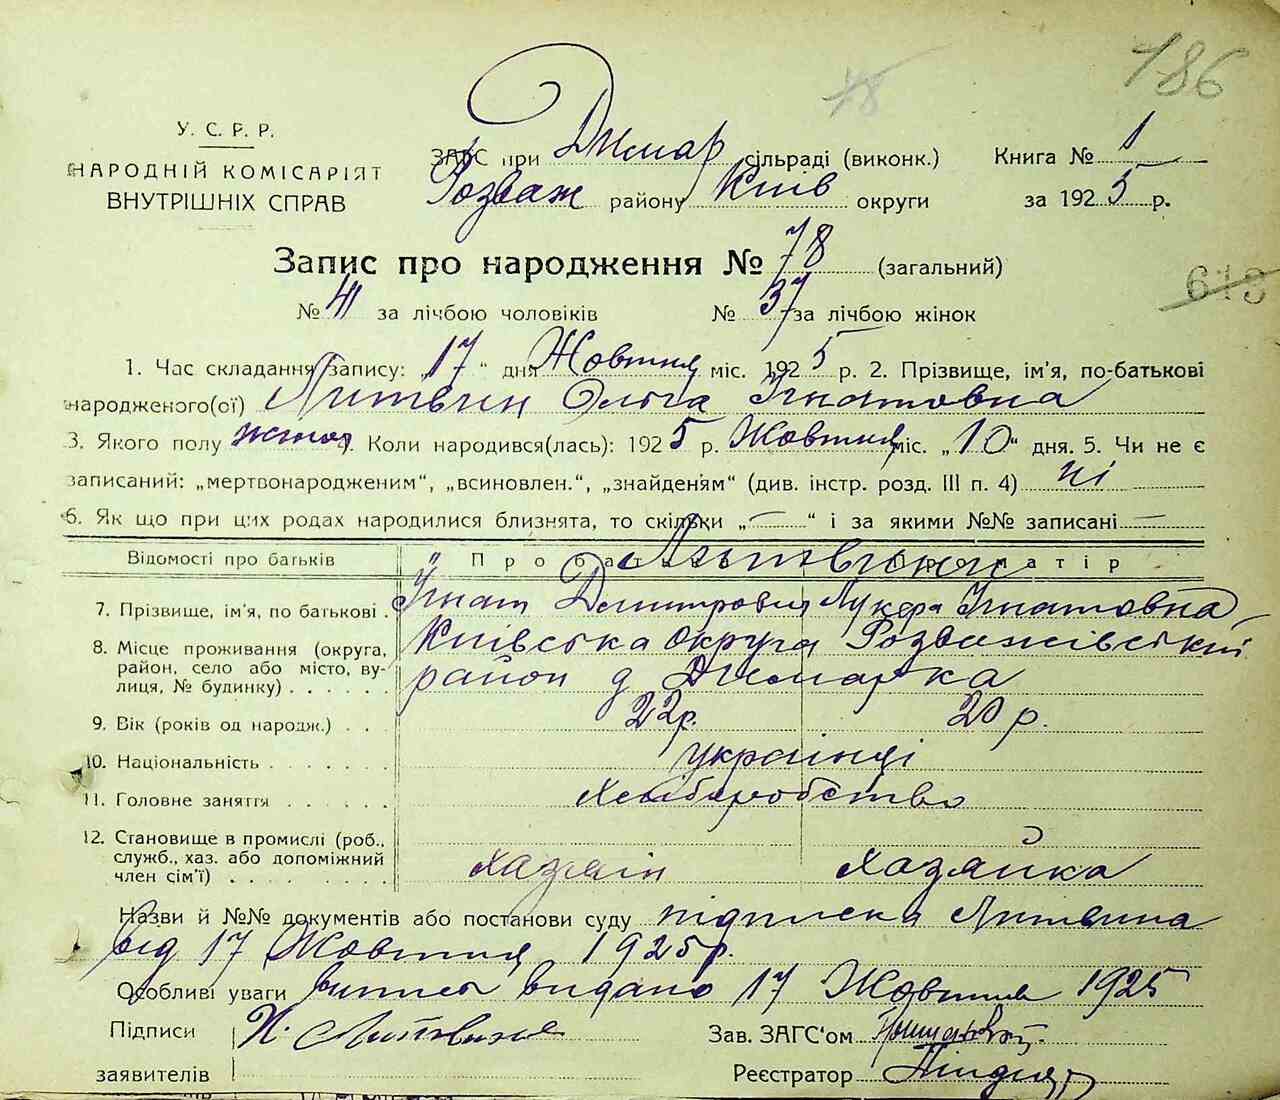 186
78
У. С. Р. Р.
НАРОДНІЙ КОМІСАРІЯТ
ВНУТРІШНІХ СПРАВ
ЗАГС при Димар сільраді (виконк.) Книга № 1
Розваж району Київ округи за 1925 р.
Запис про народження № 78 (загальний)
613
№ 41 за лічбою чоловіків № 37 за лічбою жінок
1. Час складання запису: „17“ дня Жовтня міс. 1925 р. 2. Прізвище, ім'я, по-батькові
народженого(ої) Литвин Ольга Ігнатовна
3. Якого полу жіноч 4. Коли народився(лась): 1925 р. Жовтня міс. „10“ дня. 5. Чи не є
записаний: „мертвонародженим“, „всиновлен.“, „знайденям“ (див. інстр. розд. III п. 4) ні
6. Як що при цих родах народилися близнята, то скільки „—“ і за якими №№ записані —
Відомості про батьків Про батька Про матір
Литвини
7. Прізвище, ім'я, по батькові . Ігнат Дмитрович Лукера Ігнатовна
8. Місце проживання (округа, Київська округа Розважівський
район, село або місто, ву-
лиця, № будинку) . . . . . . район д Димарка
9. Вік (років од народж.) . . . 22 р. 20 р.
10. Національність . . . . . . . українці
11. Головне заняття . . . . . . Хліборобство
12. Становище в промислі (роб.,
служб., хаз. або допоміжний
член сім'ї) . . . . . . . . . . хазяін хазяйка
Назви й №№ документів або постанови суду підписка Литвина
від 17 Жовтня 1925 р.
Особливі уваги Випись видано 17 Жовтня 1925
Підписи И. Литвин Зав. ЗАГС'ом
заявителів Реєстратор